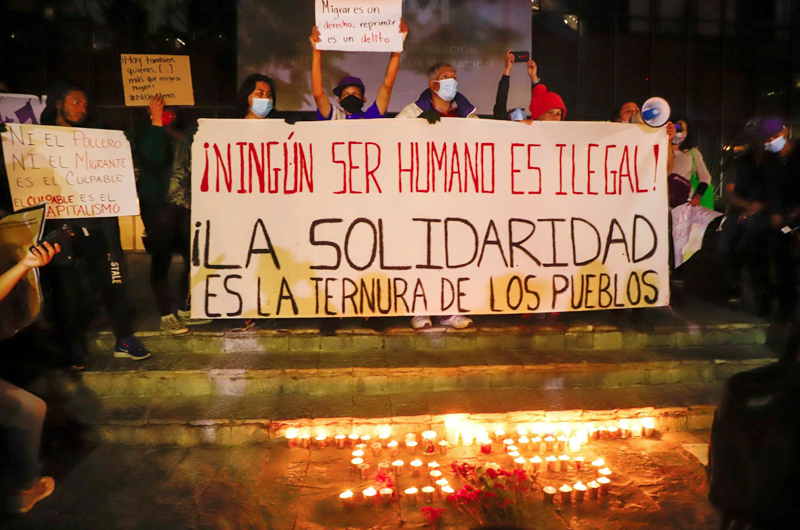 Migrar es un
derecho, reprimir
es un delito
GOBERNACIÓN
¡Hoy también
quienes (...)
más que migrar
huyen!
NI EL POLLERO
NI EL MIGRANTE
ES EL CULPABLE
EL CULPABLE ES EL
CAPITALISMO
¡NINGÚN SER HUMANO ES ILEGAL!
¡LA SOLIDARIDAD
ES LA TERNURA DE LOS PUEBLOS
STALE